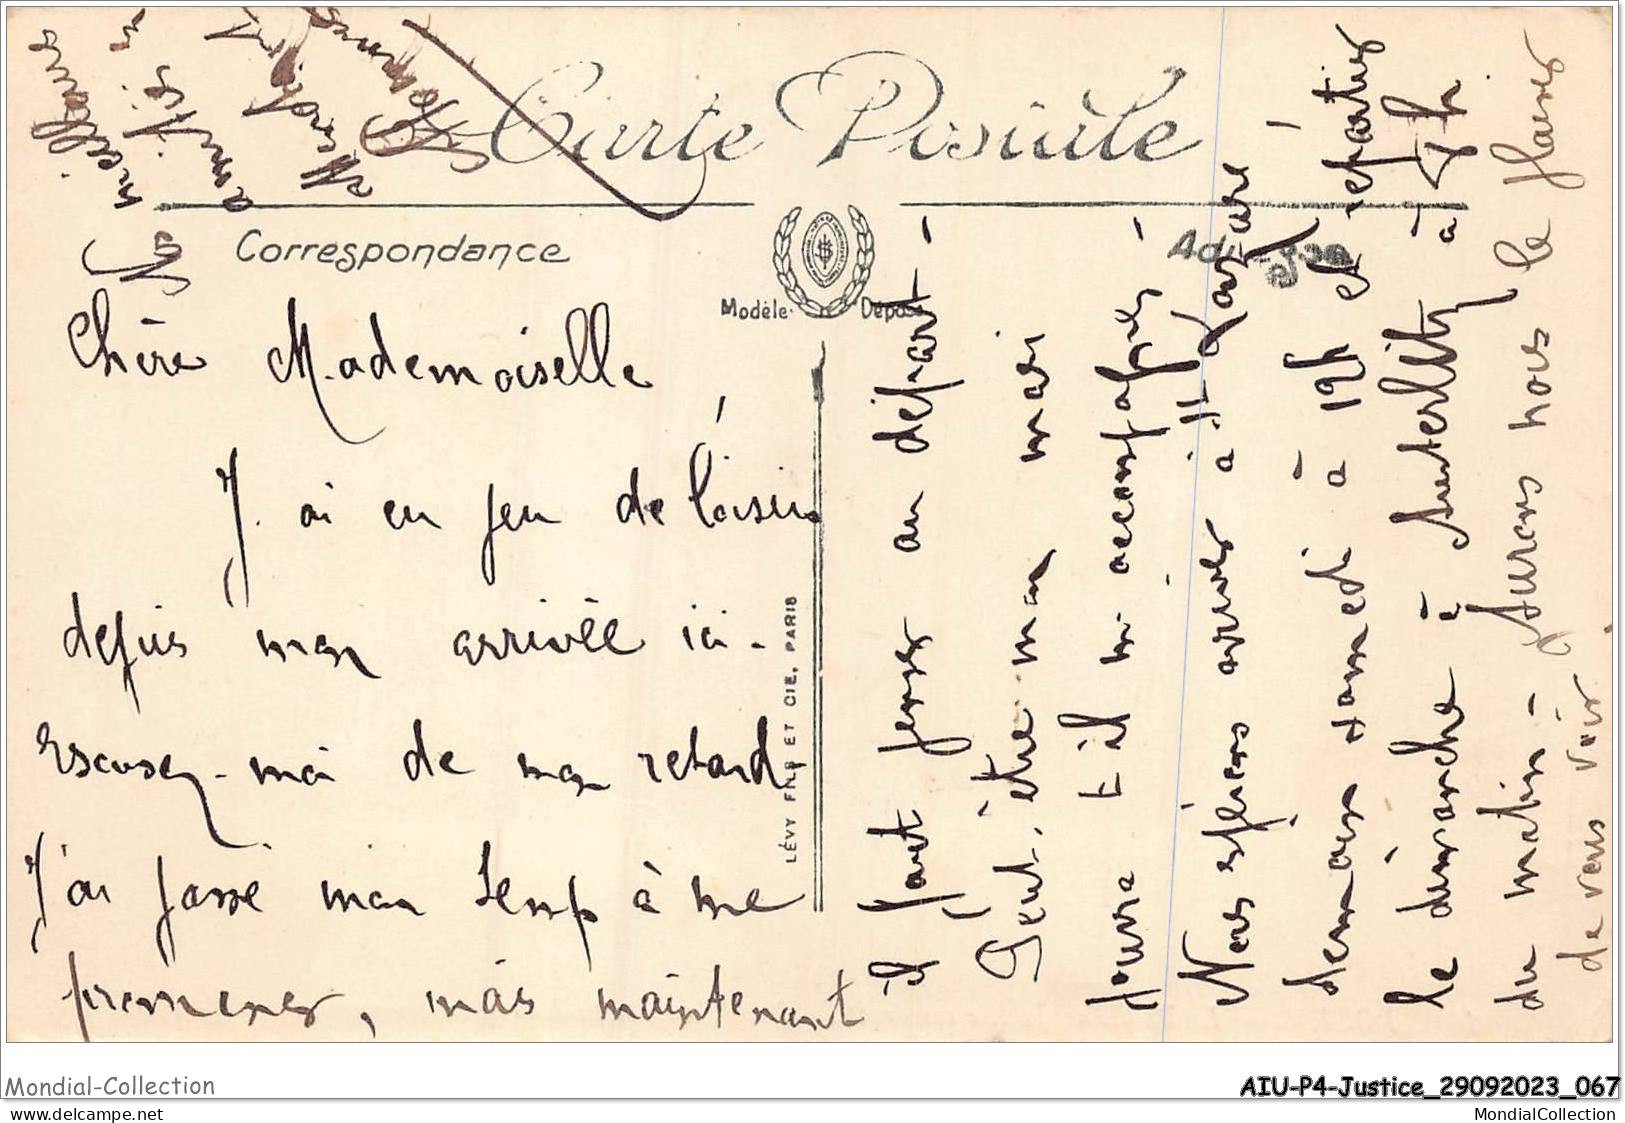 Carte Postale
Correspondance
Modèle Déposé
LÉVY FILS ET CIE, PARIS
Chère Mademoiselle,
J'ai eu peu de loisirs
depuis mon arrivée ici -
Escusez-moi de mon retard.
J'ai passé mon temps à me
promener, mais maintenant
il faut penser au départ -
Peut-être mon mari
pourra t-il m'accompagner -
Nous espérons arriver à St Lazare
demain samedi à 19h et repartir
le dimanche à Austerlitz à 7h
du matin - Aurons nous le plaisir
de vous voir
Nos
meilleures
amitiés
Mondial-Collection
AIU-P4-Justice_29092023_067
©www.delcampe.net
MondialCollection